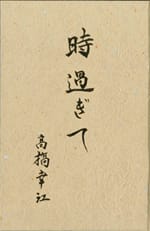 時過ぎて
高橋幸江